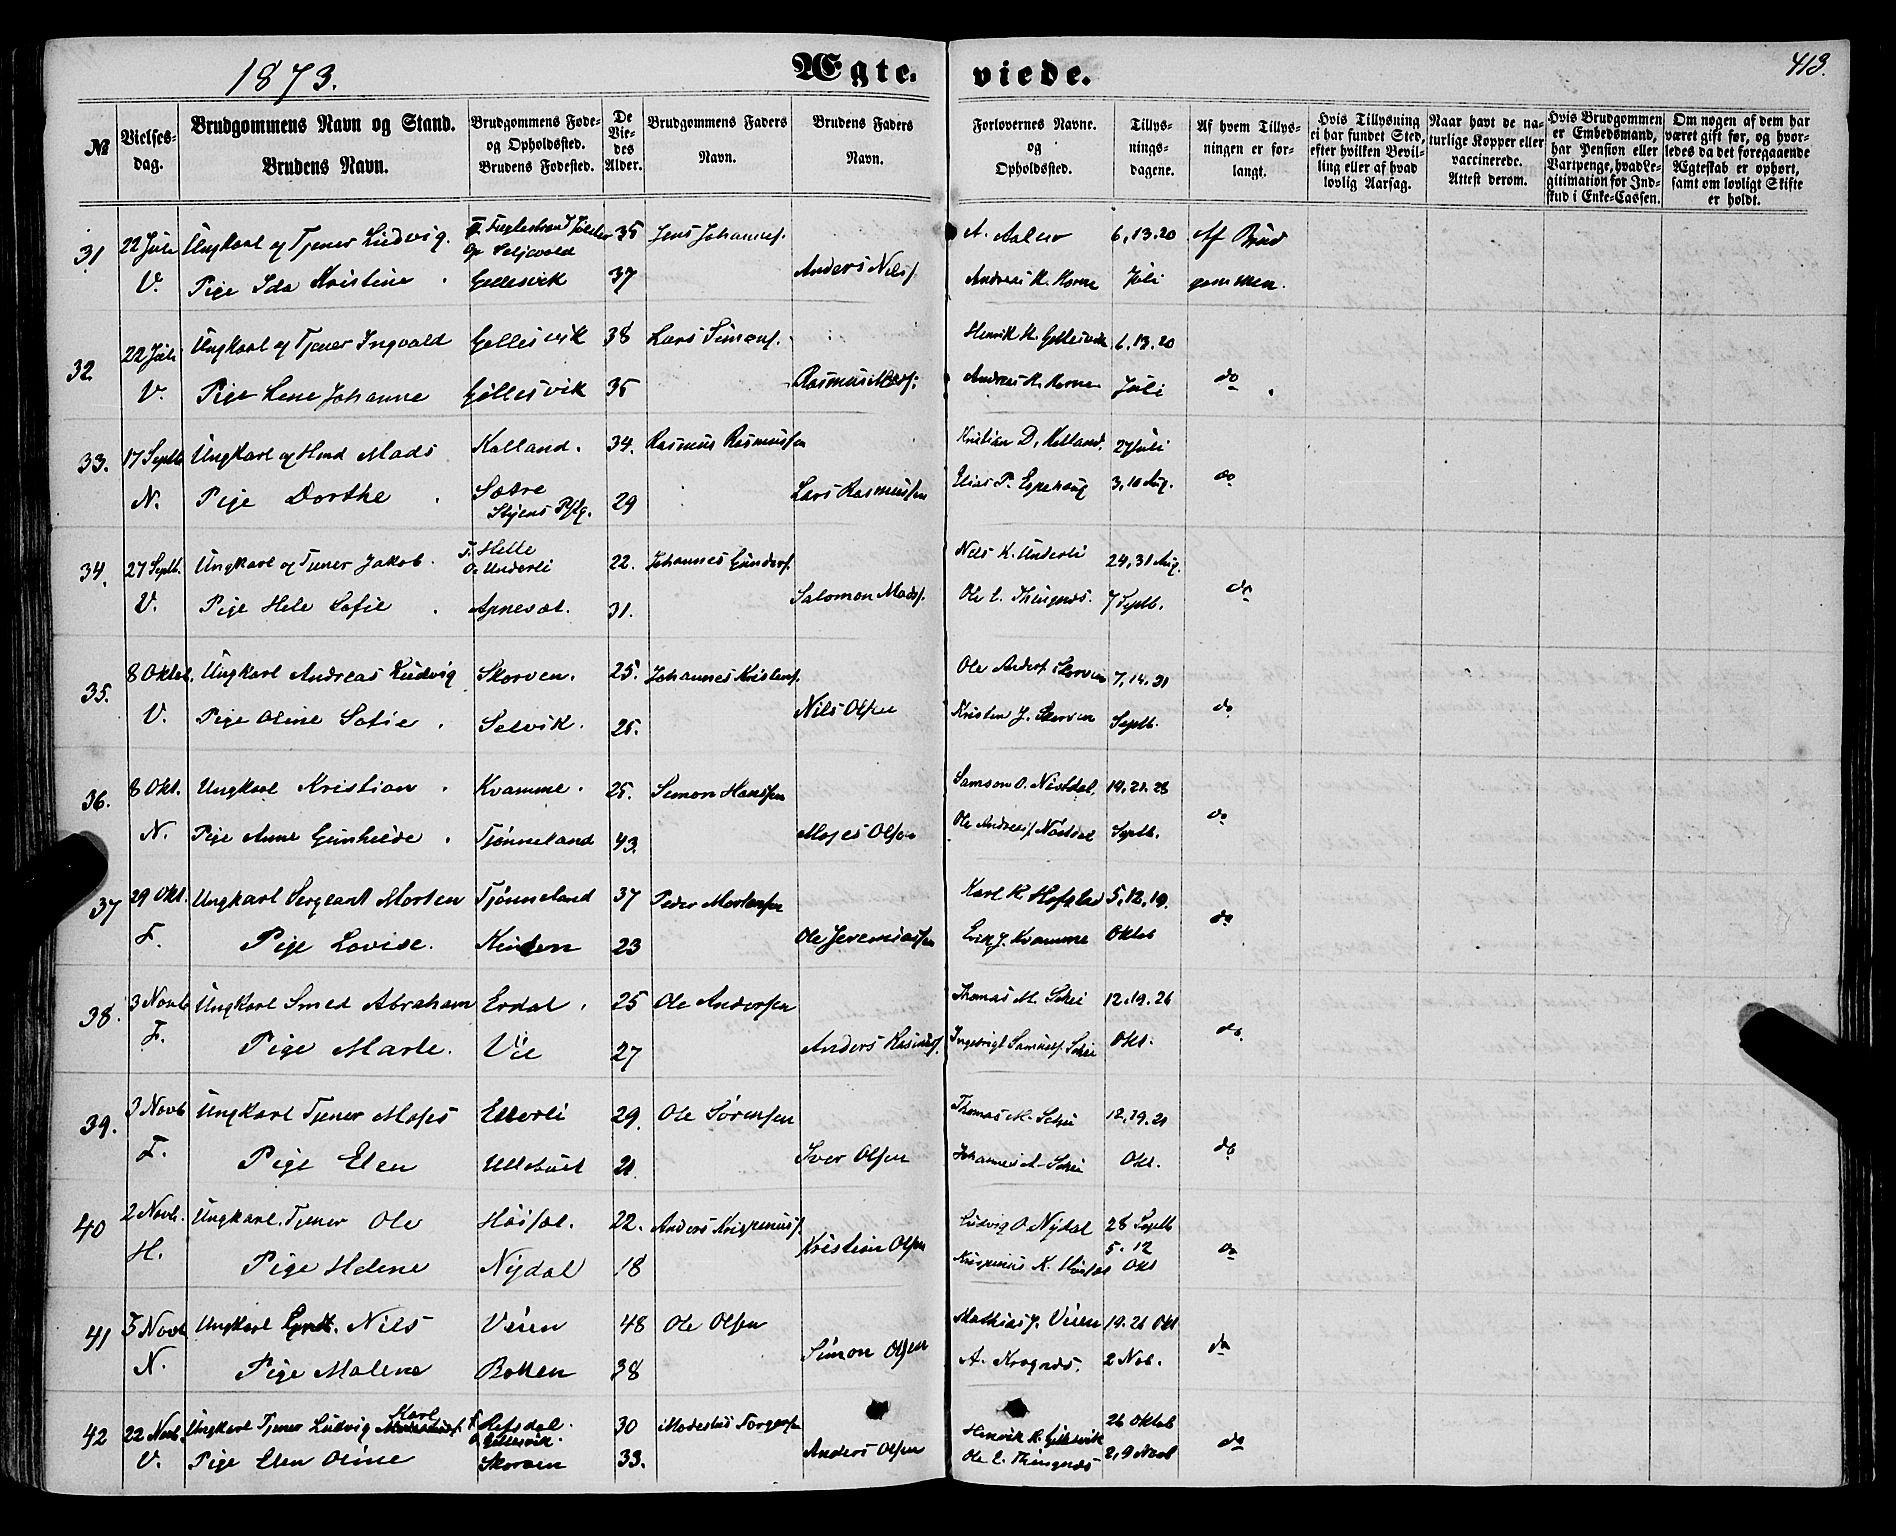 1873.
Ægte-
viede.
413.
№
Vielses-
dag.
Brudgommens Navn og Stand.
Brudens Navn.
Brudgommens Føde-
og Opholdsted.
Brudens Fødested.
De
Vie-
des
Alder.
Brudgommens Faders
Navn.
Brudens Faders
Navn.
Forlovernes Navne.
og
Opholdsted.
Tillys-
nings-
dagene.
Af hvem Tillys-
ningen er for-
langt.
Hvis Tillysning
ei har fundet Sted,
efter hvilken Bevil-
ling eller af hvad
lovlig Aarsag.
Naar havt de na-
turlige Kopper eller
vaccinerede.
Attest derom.
Hvis Brudgommen
er Embedsmand,
har Pension eller
Vartpenge, hvad Le-
gitimation for Ind-
skud i Enke-Cassen.
Om nogen af dem har
været gift før, og hvor-
ledes da det foregaaende
Ægteskab er ophørt,
samt om lovligt Skifte
er holdt.
31 22 Juli Ungkarl og Tjener Ludvig. 35 Jens Johannes. A. Aalen 6, 13. 20 Af Brud
V. Pige Ida Kristine Gellesvik 37 Anders Nils. Andreas K. Horne Juli gommen.
32 22 Juli Ungkarl og Tjener Ingvald Gellesvik 38 Lars Simons. Henrik H. Gellesvik 6, 13. 20
V. Pige Lene Johanne Gellesvik 35 Rasmus Mads. Andreas K. Horne Juli do
33. 17 Septb Ungkarl og Hmd Mads Kalland. 34. Rasmus Rasmussen Kristian D. Kalland. 27 Juli
N. Pige Dorthe Sætre 29 Lars Rasmussen Elias P. Espehaug 3, 10 Aug. do
34. 27 Septb. Ungkarl og Tjener Jakob. F. Helle O. Underli 22. Johannes Gunders. Nils K. Underli 24, 31 Aug.
V. Pige Hele Sofie 31. Salomon Mads. Ole E. Thingnæs. 7 Septb. do
35. 8 Oktob. Ungkarl Andreas Ludvig Skorven. 25. Johannes Kristens. Ole Anders. Skorven 7, 14. 21
V. Pige Oline Sofie Selvik. 25. Nils Olsen Kristen J. Skorven Septb. do
36. 8 Okt. Ungkarl Kristian Kvamme. 25. Simon Hansen Samson O. 19, 21. 28
N. Pige Anne Gunhilde Tjønneland 43. Moses Olsen Ole Andreas. Septb. do
37 29 Okt. Ungkarl Sergeant Morten Tjønneland 37 Peder Mortensen Karl K. Hofstad 5, 12, 19.
F. Pige Lovise. 23 Ole Jeremiassen Erik J. Kvamme Oktob do
38. 3 Novb Ungkarl Smed Abraham Erdal 25 Ole Andersen Thomas M. Schei 12, 19. 26
F. Pige Marte. Vie 27 Anders Rasmus. Ingebrigt Samuels. Schei Okt. do.
39. 3 Novb Ungkarl Tjener Moses 29. Ole Sørensen Thomas M. Schei 12, 19. 21
F. Pige Elen 21 Iver Olsen Johannes A. Schei Okt. do
40 2 Novb. Ungkarl, Tjener Ole 22. Anders Krispinus. Ludvig O. Nydal 28 Septb
H. Pige Helene Nydal 18 Kristian Olsen Krispinus K. 5. 12 Okt do
41 5 Novb Ungkarl Nils Veien 48 Ole Olsen Mathias J. Veien 19. 26 Okt
N. Pige Malene Botten 38 Simon Olsen A. Krognæs. 2 Nob. do
42 22 Novb. Ungkarl Tjener Ludvig Karl F. Refsdal. O. Gellesvik. 30 Modestus Torgersen Henrik H. Gellesvik 26 Oktob
V. Pige Elen Oline Skorven 33. Anders Olsen Ole E. Thingnæs 2, 9 Novb do